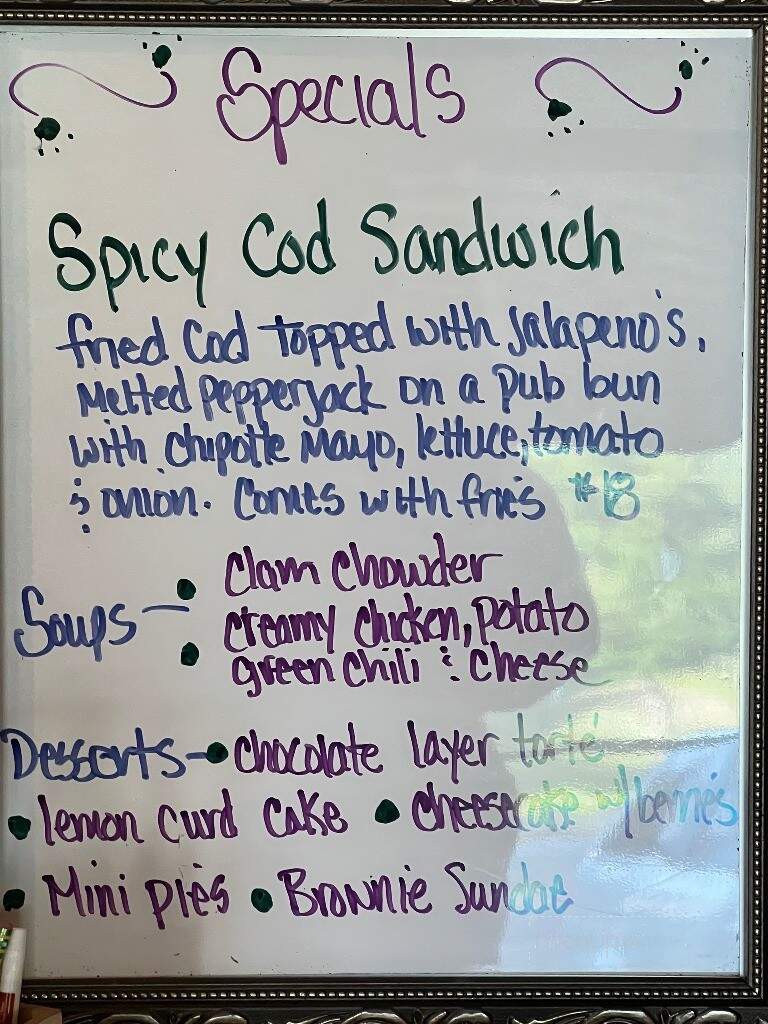 Specials
Spicy Cod Sandwich
fried Cod topped with jalapeno's,
Melted pepperjack on a pub bun
with chipotle mayo, lettuce, tomato
& onion. Comes with fries $18
Soups — • Clam Chowder
• creamy chicken, potato
green chili & cheese
Desserts - • chocolate layer torte
• lemon curd cake • cheesecake w/berries
• Mini pies • Brownie Sundae